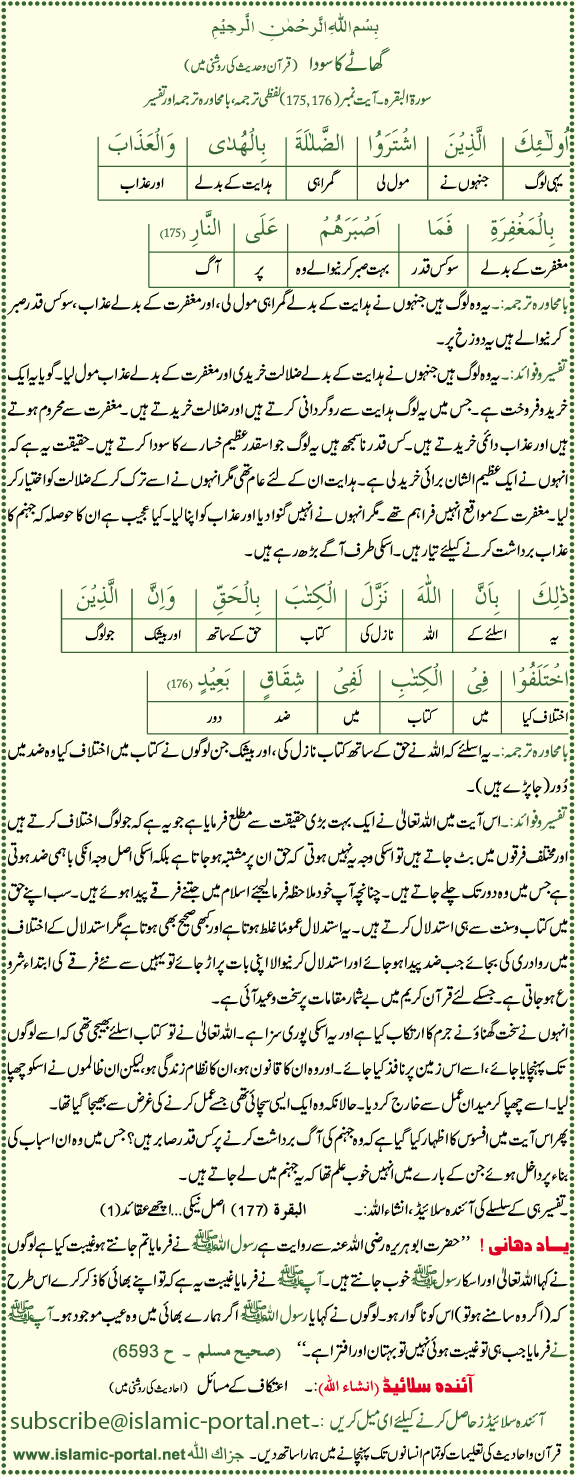 بِسْمِ اللهِ الرَّحْمٰنِ الرَّحِيْمِ
گھاٹے کا سودا (قرآن وحدیث کی روشنی میں)
سورۃ البقرہ ۔ آیت نمبر (175,176) لفظی ترجمہ، بامحاورہ ترجمہ اور تفسیر
اُولٰٓئِكَ الَّذِيْنَ اشْتَرَوُا الضَّلٰلَةَ بِالْهُدٰى وَالْعَذَابَ
یہی لوگ جنہوں نے مول لی گمراہی ہدایت کے بدلے اور عذاب
بِالْمَغْفِرَةِ فَمَا اَصْبَرَهُمْ عَلَى النَّارِ (175)
مغفرت کے بدلے سو کس قدر بہت صبر کرنیوالے وہ پر آگ
بامحاورہ ترجمہ:۔ یہ وہ لوگ ہیں جنہوں نے ہدایت کے بدلے گمراہی مول لی، اور مغفرت کے بدلے عذاب، سو کس قدر صبر
کرنیوالے ہیں یہ دوزخ پر۔
تفسیر و فوائد:۔ یہ وہ لوگ ہیں جنہوں نے ہدایت کے بدلے ضلالت خریدی اور مغفرت کے بدلے عذاب مول لیا۔ گویا یہ ایک
خرید و فروخت ہے۔ جس میں یہ لوگ ہدایت سے روگردانی کرتے ہیں اور ضلالت خریدتے ہیں۔ مغفرت سے محروم ہوتے
ہیں اور عذاب دائمی خریدتے ہیں۔ کس قدر ناسمجھ ہیں یہ لوگ جو اسقدر عظیم خسارے کا سودا کرتے ہیں۔ حقیقت یہ ہے کہ
انہوں نے ایک عظیم الشان برائی خرید لی ہے۔ ہدایت ان کے لئے عام تھی مگر انہوں نے اسے ترک کر کے ضلالت کو اختیار کر
لیا۔ مغفرت کے مواقع انہیں فراہم تھے۔ مگر انہوں نے انہیں گنوا دیا اور عذاب کو اپنا لیا۔ کیا عجیب ہے ان کا حوصلہ کہ جہنم کا
عذاب برداشت کرنے کیلئے تیار ہیں۔ اسکی طرف آگے بڑھ رہے ہیں۔
ذٰلِكَ بِاَنَّ اللّٰهَ نَزَّلَ الْكِتٰبَ بِالْحَقِّ وَاِنَّ الَّذِيْنَ
یہ اسلئے کے اللہ نازل کی کتاب حق کے ساتھ اور بیشک جو لوگ
اخْتَلَفُوْا فِىْ الْكِتٰبِ لَفِىْ شِقَاقٍ بَعِيْدٍ (176)
اختلاف کیا میں کتاب میں ضد دور
بامحاورہ ترجمہ:۔ یہ اسلئے کہ اللہ نے حق کے ساتھ کتاب نازل کی، اور بیشک جن لوگوں نے کتاب میں اختلاف کیا وہ ضد میں
دُور (جا پڑے ہیں)۔
تفسیر و فوائد:۔ اس آیت میں اللہ تعالیٰ نے ایک بہت بڑی حقیقت سے مطلع فرمایا ہے جو یہ ہے کہ جو لوگ اختلاف کرتے ہیں
اور مختلف فرقوں میں بٹ جاتے ہیں تو اسکی وجہ یہ نہیں ہوتی کہ حق ان پر مشتبہ ہو جاتا ہے بلکہ اسکی اصل وجہ انکی باہمی ضد ہوتی
ہے جس میں وہ دور تک چلے جاتے ہیں۔ چنانچہ آپ خود ملاحظہ فرما لیجئے اسلام میں جتنے فرقے پیدا ہوئے ہیں۔ سب اپنے حق
میں کتاب و سنت سے ہی استدلال کرتے ہیں۔ یہ استدلال عمومًا غلط ہوتا ہے اور کبھی صحیح بھی ہوتا ہے مگر استدلال کے اختلاف
میں رواداری کی بجائے جب ضد پیدا ہو جائے اور استدلال کرنیوالا اپنی بات پر اڑ جائے تو یہیں سے نئے فرقے کی ابتداء شرو
ع ہو جاتی ہے۔ جسکے لئے قرآن کریم میں بے شمار مقامات پر سخت وعید آئی ہے۔
انہوں نے سخت گھناؤنے جرم کا ارتکاب کیا ہے اور یہ اسکی پوری سزا ہے۔ اللہ تعالیٰ نے تو کتاب اسلئے بھیجی تھی کہ اسے لوگوں
تک پہنچایا جائے، اسے اس زمین پر نافذ کیا جائے۔ اور وہ ان کا قانون ہو، ان کا نظام زندگی ہو، لیکن ان ظالموں نے اسکو چھپا
لیا۔ اسے چھپا کر میدان عمل سے خارج کر دیا۔ حالانکہ وہ ایک ایسی سچائی تھی جسے عمل کرنے کی غرض سے بھیجا گیا تھا۔
پھر اس آیت میں افسوس کا اظہار کیا گیا ہے کہ وہ جہنم کی آگ برداشت کرنے پر کس قدر صابر ہیں؟ جس میں وہ ان اسباب کی
بناء پر داخل ہوئے جن کے بارے میں انہیں خوب علم تھا کہ یہ جہنم میں لے جاتے ہیں۔
۔ تفسیر ہی کے سلسلے کی آئندہ سلائیڈ، انشاء اللہ:۔ البقرة (177) اصل نیکی...اچھے عقائد (1)
یاد دھانی ! ’’حضرت ابو ہریرہ رضی اللہ عنہ سے روایت ہے رسول اللہ ﷺ نے فرمایا تم جانتے ہو غیبت کیا ہے لوگوں
نے کہا اللہ تعالیٰ اور اسکا رسول ﷺ خوب جانتے ہیں۔ آپ ﷺ نے فرمایا غیبت یہ ہے کہ تو اپنے بھائی کا ذکر کرے اس طرح
کہ (اگر وہ سامنے ہو تو) اس کو ناگوار ہو۔ لوگوں نے کہا یا رسول اللہ ﷺ اگر ہمارے بھائی میں وہ عیب موجود ہو۔ آپ ﷺ
نے فرمایا جب ہی تو غیبت ہوئی نہیں تو بہتان اور افترا ہے۔‘‘ (صحیح مسلم ۔ ح 6593)
آئندہ سلائیڈ (انشاء اللہ):۔ اعتکاف کے مسائل (احادیث کی روشنی میں)
آئندہ سلائیڈز حاصل کرنے کیلئے ای میل کریں :۔ subscribe@islamic-portal.net
قرآن و احادیث کی تعلیمات کو تمام انسانوں تک پہنچانے میں ہمارا ساتھ دیں۔ جزاک اللہ www.islamic-portal.net